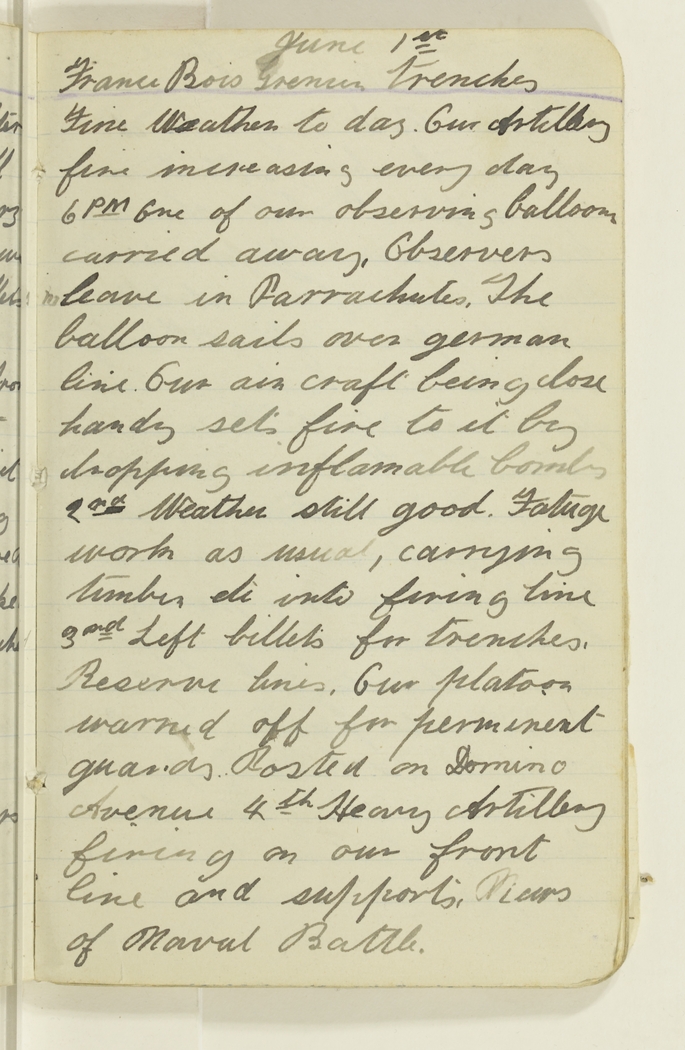 June 1st
France Bois Grenier Trenches
Fine Weather to day. Our Artillery
fire increasing every day
6 PM One of our observing balloons
carried away. Observers
leave in Parrachutes. The
balloon sails over german
line. Our air craft being close
handy sets fire to it by
dropping inflamable bombs
2nd Weather still good. Fatuge
work as usual, carrying
timber etc into firing line
3rd Left billets for trenches.
Reserve lines. Our platoon
warned off for perminent
guards. Posted on Domino
Avenue 4th Heavy Artillery
firing on our front
line and supports. News
of Naval Battle.